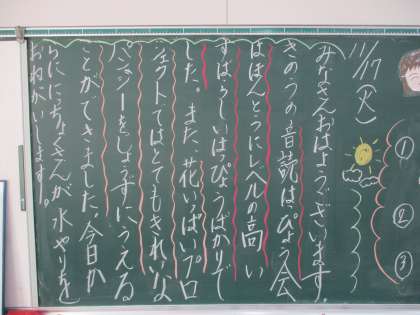 11/17(火)
みなさんおはようございます。
きのうの音読はっぴょう会
はほんとうにレベルの高い
すばらしいはっぴょうばかりで
した。また、花いっぱいプロ
ジェクトではとてもきれいな
パンジーをじょうずにうえる
ことができました。今日か
らにっちょくさんが水やりを
おねがいします。
①
②
③